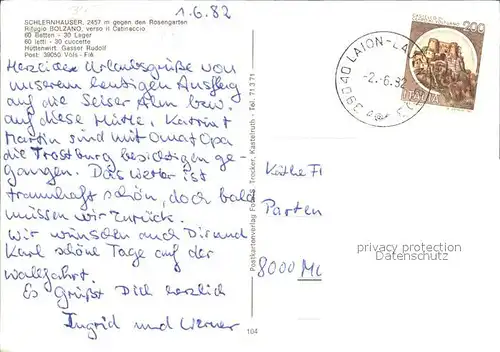 1.6.82
SCHLERNHÄUSER, 2457 m gegen den Rosengarten
Rifugio BOLZANO, verso il Catinaccio
60 Betten - 30 Lager
60 letti - 30 cuccette
Hüttenwirt: Gasser Rudolf
Post: 39050 Völs - Fiè
Herzliche Urlaubsgrüße von
unserem heutigen Ausflug
auf die Seiser Alm bzw.
auf diese Hütte. Katrin+
Martin sind mit Oma+Opa
die Trostburg besichtigen ge-
gangen. Das Wetter ist
traumhaft schön, doch bald
müssen wir zurück.
Wir wünschen auch Dir und
Karl schöne Tage auf der
Wallfahrt.
Es grüßt Dich herzlich
Ingrid und Werner
Postkartenverlag Trocker, Kastelruth - Tel. 71371
104
200
ITALIA
39040 LAION-LA
-2.-6.82
Käthe Fl
Parten
8000 MÜ
privacy protection
Datenschutz